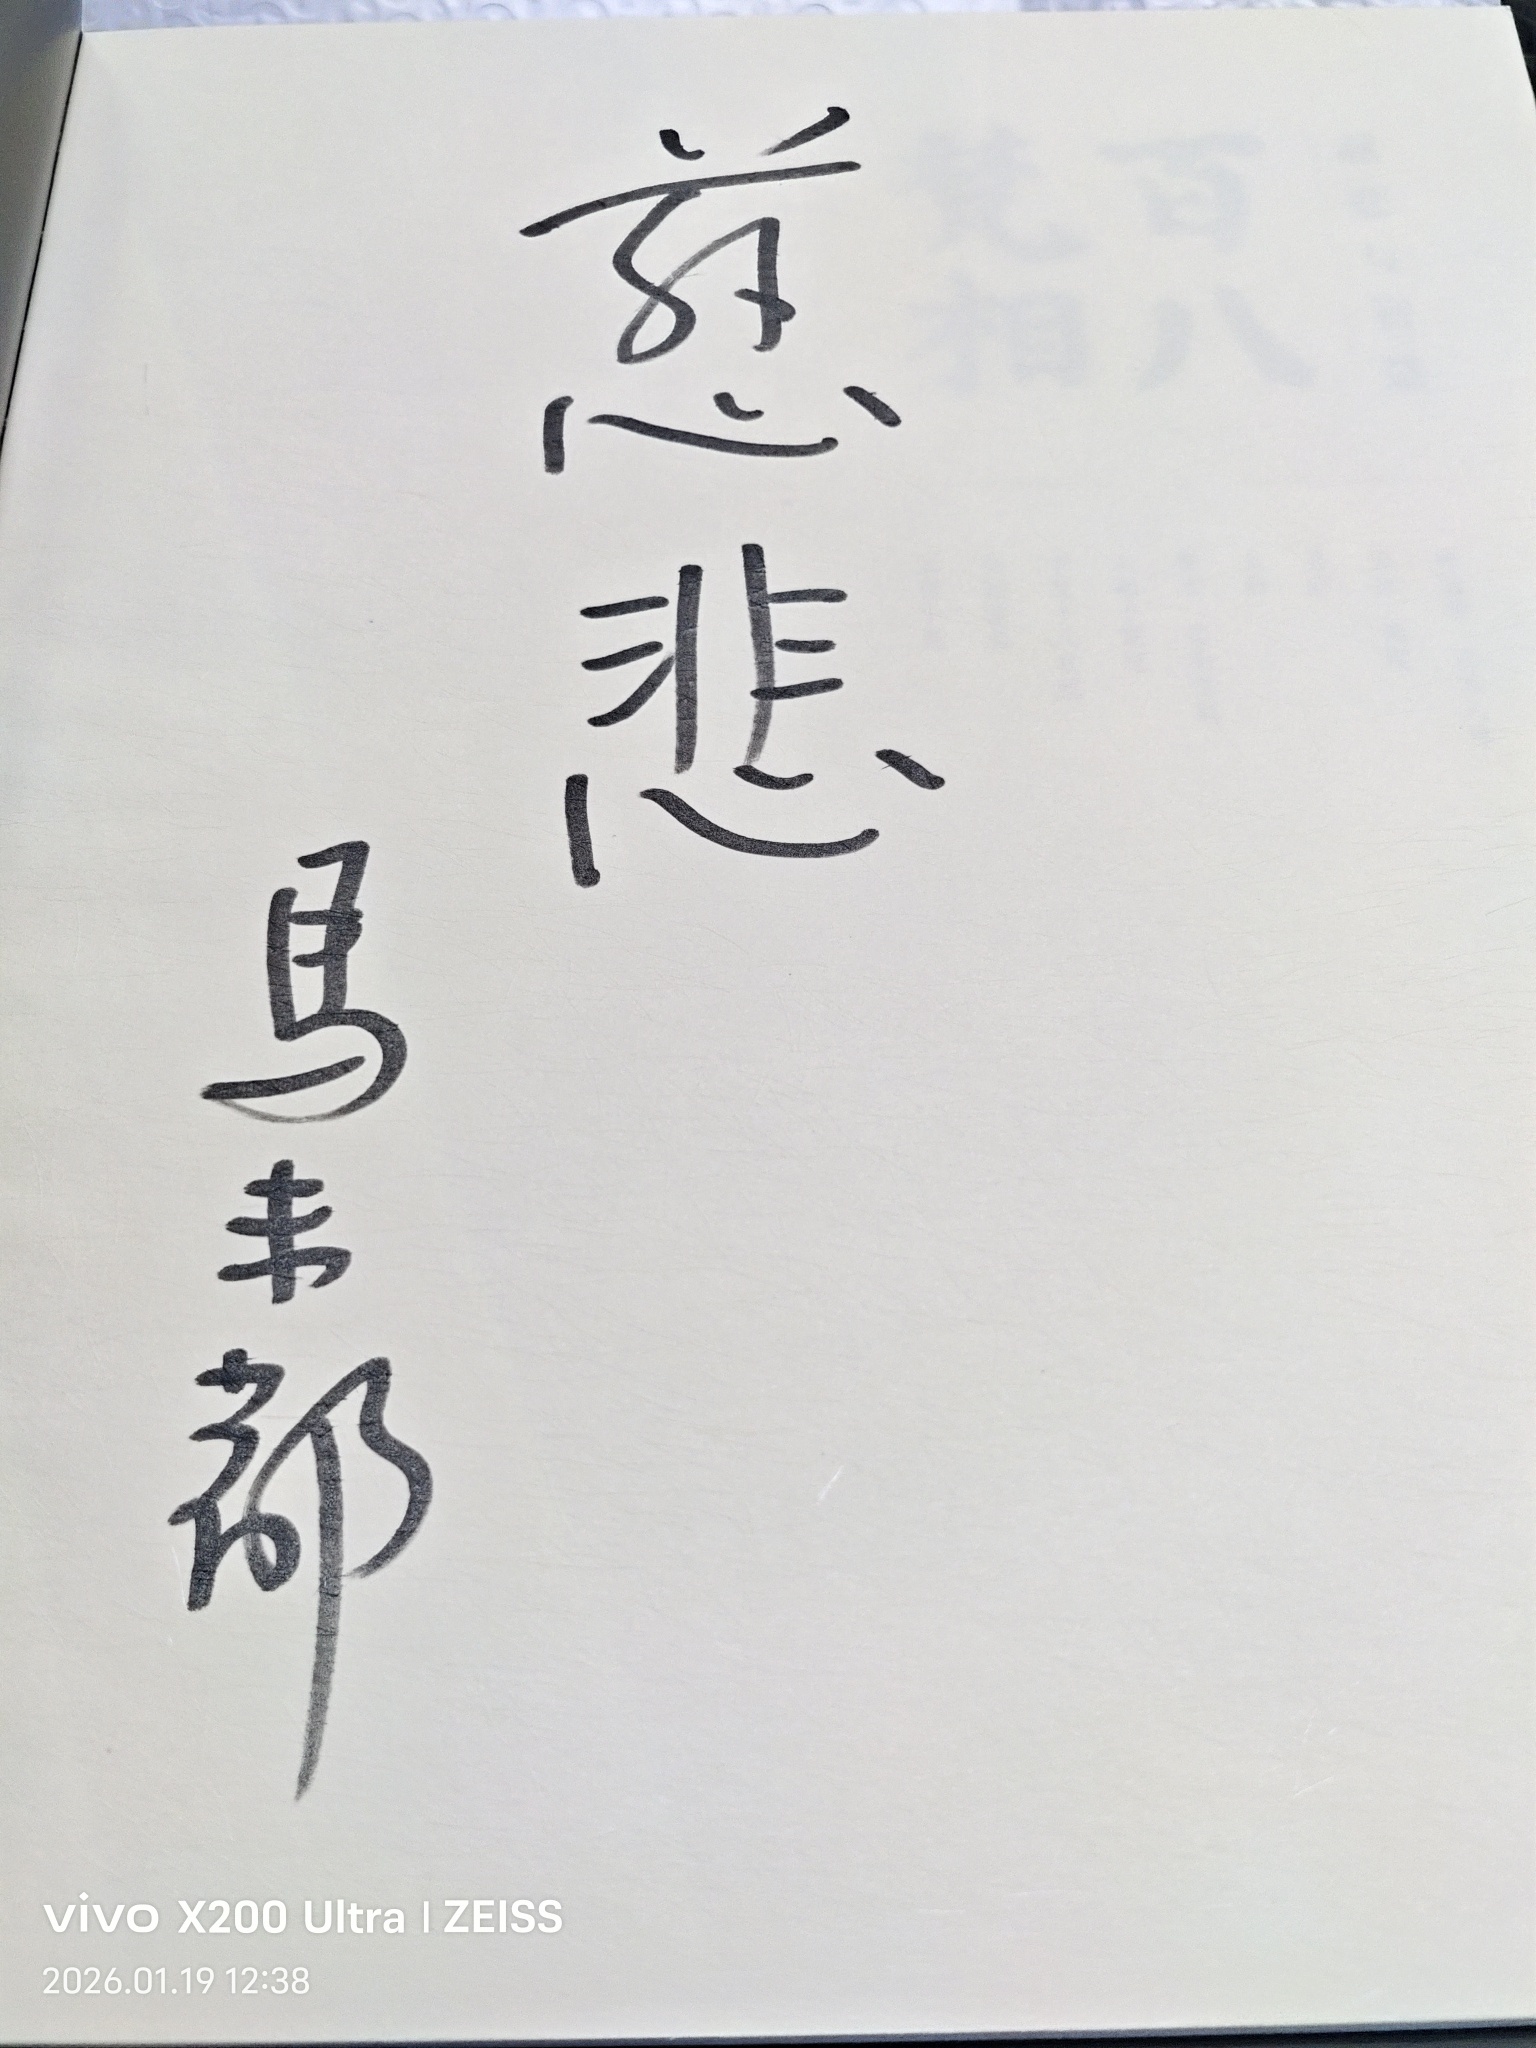 慈悲
馬未都
vivo X200 Ultra | ZEISS
2026.01.19 12:38